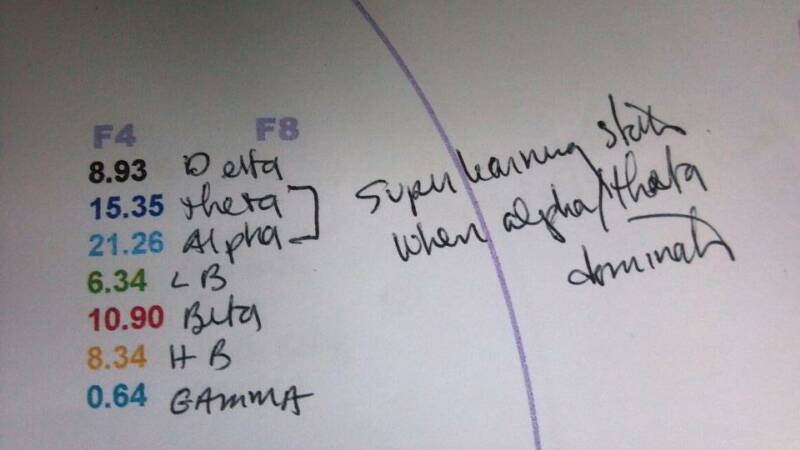 F4 F8
8.93 Delta
15.35 theta
21.26 Alpha
6.34 LB
10.90 Beta
8.34 HB
0.64 GAMMA
Super learning
when alpha/theta
dominate